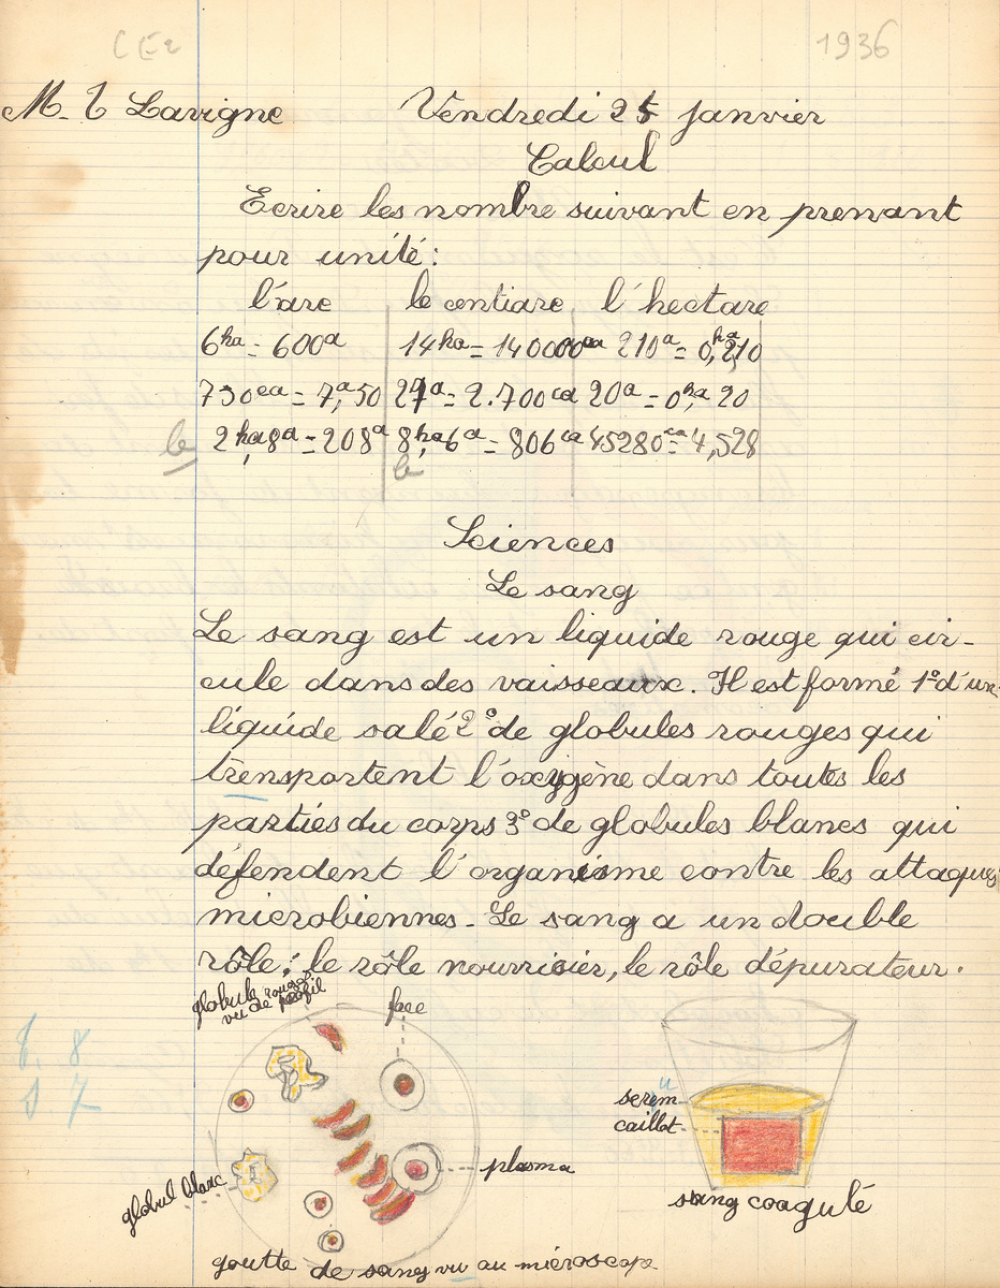 CE2 1936
M. T Lavigne Vendredi 25 janvier
Calcul
Ecrire les nombre suivant en prenant
pour unité:
l'are le centiare l'hectare
6ha = 600a 14ha = 140000ca 210a = 0,ha210
750ca = 7,a50 27a = 2.700ca 20a = 0,ha20
2ha,8a = 208a 8ha,6a = 806ca 45280ca = 4,528
b
b
Sciences
Le sang
Le sang est un liquide rouge qui cir-
cule dans des vaisseaux. Il est formé 1° d'un
liquide salé 2° de globules rouges qui
trensportent l'oxygène dans toutes les
parties du corps 3° de globules blancs qui
défendent l'organisme contre les attaques
microbiennes. Le sang a un double
rôle: le rôle nourricier, le rôle dépurateur.
globule rouge
vu de profil
face
8
7
u
serem
caillot
plasma
globul blanc
sang coagulé
goutte de sang vu au microscope